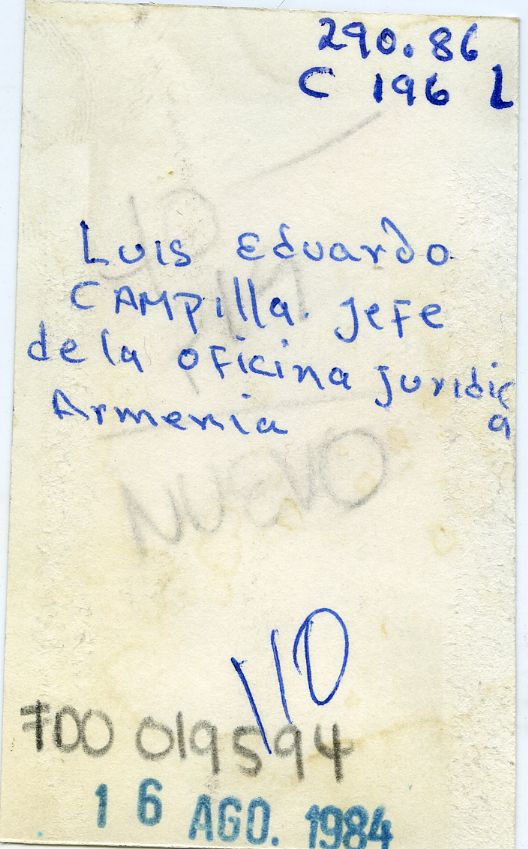 290.86
C 196 L
Luis Eduardo
CAMPilla. Jefe
de la oficina Juridic
a
Armenia
NUEVO
110
700 019594
16 AGO. 1984